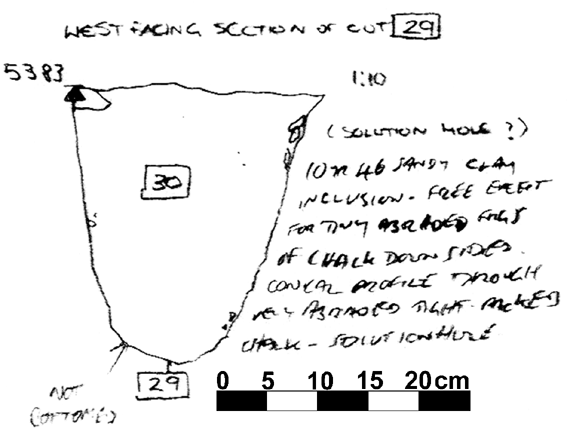 WEST FACING SECTION OF CUT 29
5383
1:10
(SOLUTION HOLE ?)
30
10YR 46 SANDY CLAY
INCLUSION-FREE EXCEPT
FOR TINY ABRADED FRAGS
OF CHALK DOWN SIDES.
CONICAL PROFILE THROUGH
VERY ABRADED TIGHT-PACKED
CHALK - SOLUTION HOLE
NOT
BOTTOMED
29
0 5 10 15 20cm